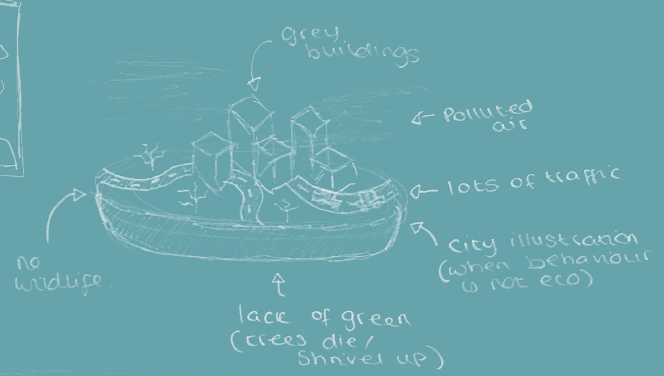 grey
buildings
Polluted
air
lots of traffic
no
wildlife.
city illustration
(when behaviour
is not eco)
lack of green
(trees die/
Shrivel up)